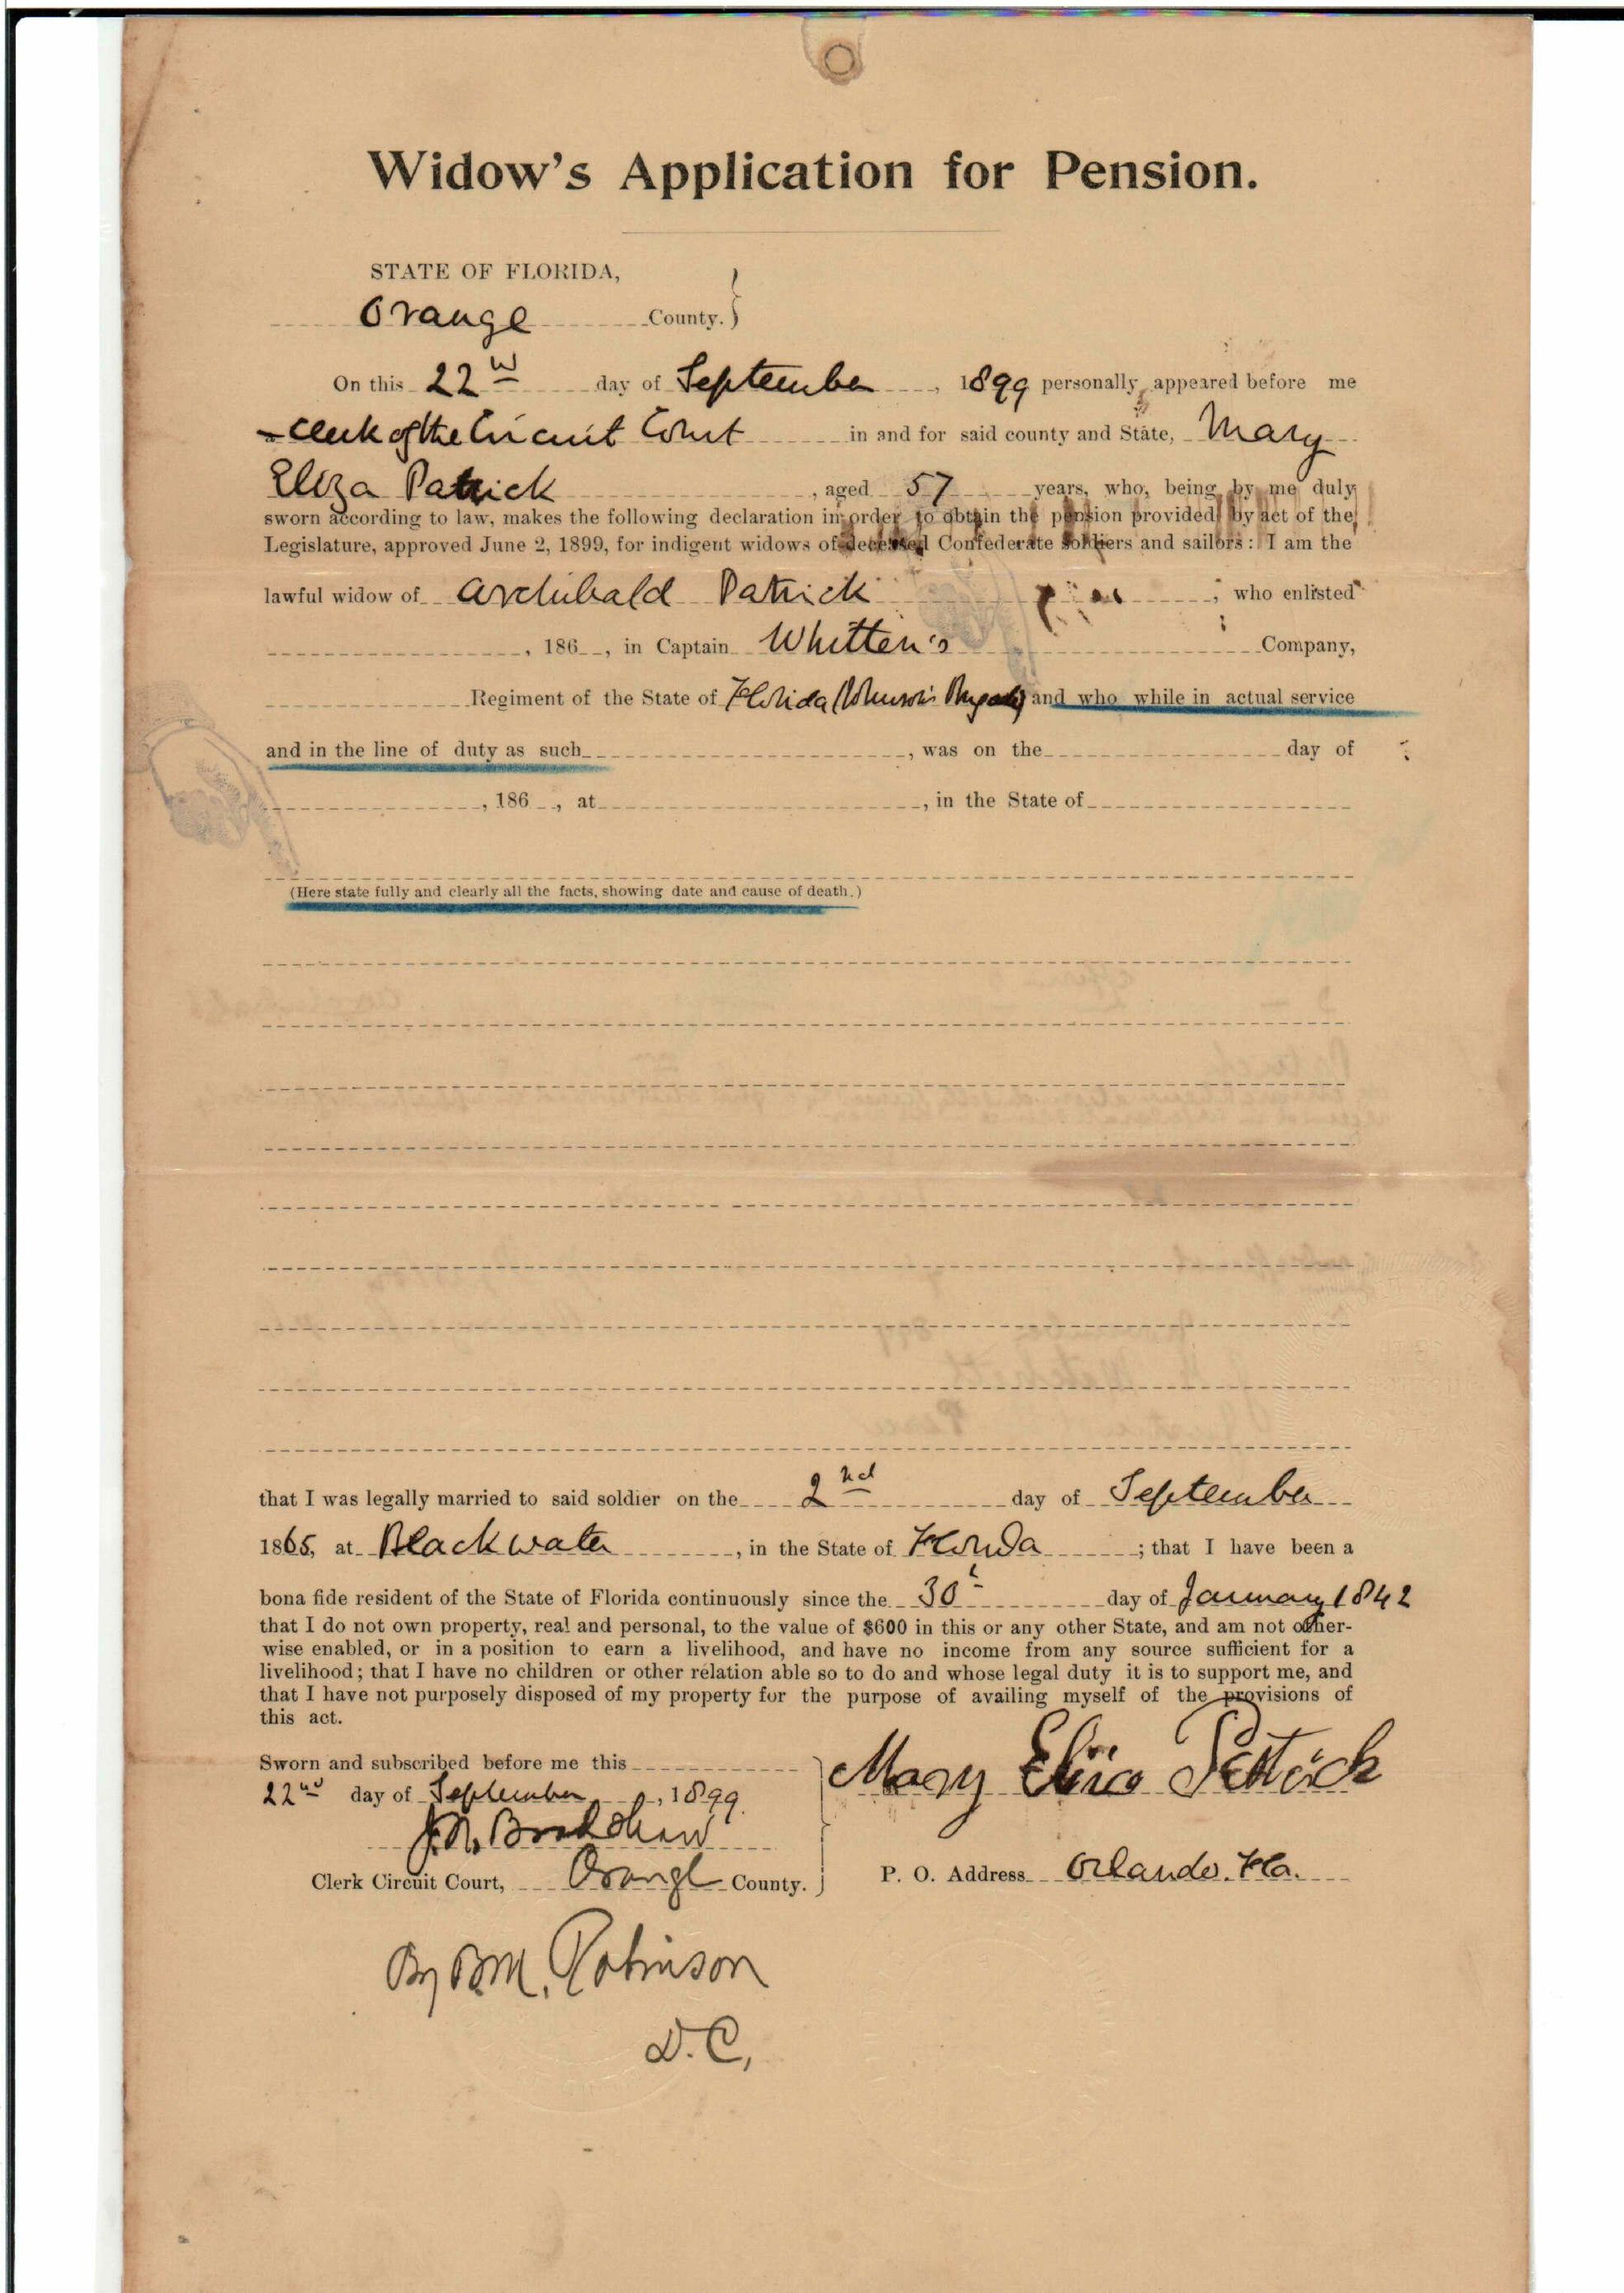 Widow's Application for Pension.
STATE OF FLORIDA,
Orange County.
On this 22nd day of September, 1899 personally appeared before me
a Clerk of the Circuit Court in and for said county and State, Mary
Eliza Patrick, aged 57 years, who, being by me duly
sworn according to law, makes the following declaration in order to obtain the pension provided by act of the
Legislature, approved June 2, 1899, for indigent widows of deceased Confederate soldiers and sailors: I am the
lawful widow of Archibald Patrick, who enlisted
, 186 , in Captain Whitten's Company,
Regiment of the State of Florida (Johnson's Brigade) and who while in actual service
and in the line of duty as such , was on the day of
, 186 , at , in the State of
(Here state fully and clearly all the facts, showing date and cause of death.)
that I was legally married to said soldier on the 2nd day of September
1865, at Blackwater, in the State of Florida; that I have been a
bona fide resident of the State of Florida continuously since the 30t day of January 1842
that I do not own property, real and personal, to the value of $600 in this or any other State, and am not other-
wise enabled, or in a position to earn a livelihood, and have no income from any source sufficient for a
livelihood; that I have no children or other relation able so to do and whose legal duty it is to support me, and
that I have not purposely disposed of my property for the purpose of availing myself of the provisions of
this act.
Sworn and subscribed before me this
22nd day of September, 1899.
Mary Eliza Patrick
J.M. Bradshaw
Clerk Circuit Court, Orange County.
P. O. Address Orlando. Fla.
By B.M. Robinson
D.C,